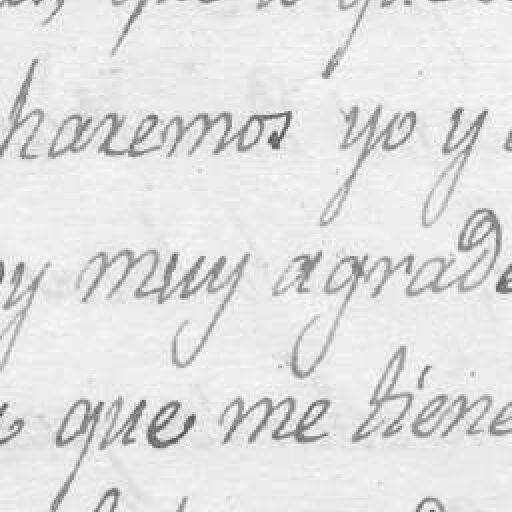 que lo que
haremos yo y
y muy agrade
que me tiene